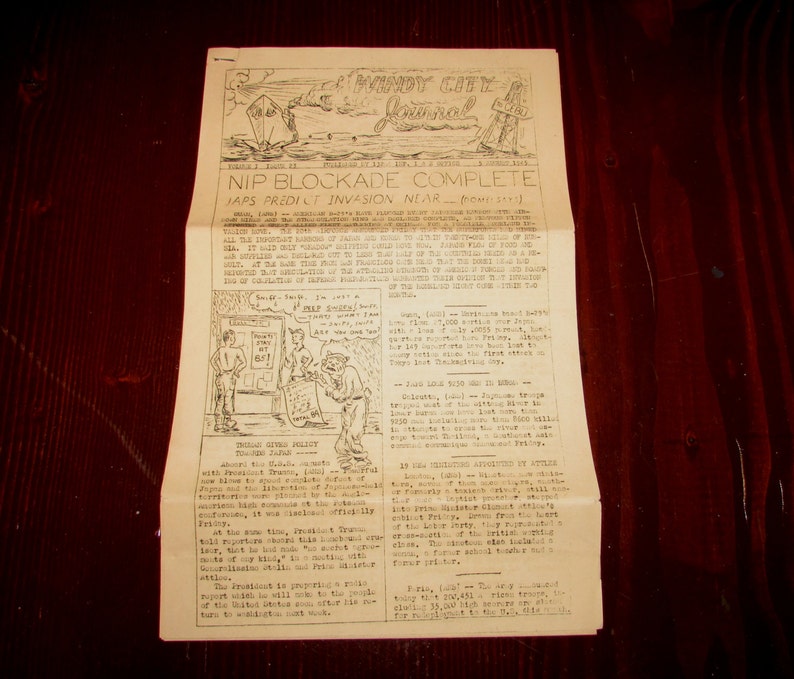 WINDY CITY
Journal
TO CEBU
VOLUME I ISSUE 23 PUBLISHED BY 132 INF. I & E OFFICE 5 AUGUST 1945
NIP BLOCKADE COMPLETE
JAPS PREDICT INVASION NEAR __ (DOMEI SAYS)
GUAM, (ANS) -- AMERICAN B-29'S HAVE PLUGGED EVERY JAPANESE HARBOR WITH AIR-
BORN MINES AND THE STRANGULATION RING WAS DECLARED COMPLETE, AS FURTHER NIPPON
REPORTED A GREAT ALLIED FLEET GATHERING AT OKINAWA FOR A POSSIBLE HOMELAND IN-
VASION MOVE. THE 20th AIRFORCE ANNOUNCED FRIDAY THAT THE SUPERFORTS HAD MINED
ALL THE IMPORTANT HARBORS OF JAPAN AND KOREA TO WITHIN TWENTY-ONE MILES OF RUS-
SIA. IT SAID ONLY "SHADOW" SHIPPING COULD MOVE NOW. JAPANS FLOW OF FOOD AND
WAR SUPPLIES WAS DECLARED CUT TO LESS THAN HALF OF THE COUNTRIES NEEDS AS A RE-
SULT. AT THE SAME TIME FROM SAN FRANCISCO CAME NEWS THAT THE DOMEI NEWS HAD
REPORTED THAT SPECULATION OF THE ATTACKING STRENGTH OF AMERICAN FORCES AND
ING OF COMPLETION OF DEFENSE PREPARATIONS WARRANTED THEIR OPINION THAT INVASION
OF THE HOMELAND MIGHT COME WITHIN TWO
MONTHS.
SNIFF-SNIFF, I'M JUST A
DEEP SWOON! SNIFF,
--THATS WHAT I AM
--SNIFF, SNIFF
ARE YOU ONE TOO?
POINTS
STAY
AT
85!
TOTAL 84
TRUMAN GIVES POLICY
TOWARDS JAPAN -----
Aboard the U.S.S. Augusta
with President Truman, (ANS) -- Powerful
new blows to speed complete defeat of
Japan and the liberation of Japanese-held
territories were planned by the Anglo-
American high commands at the Potsdam
conference, it was disclosed officially
Friday.
At the same time, President Truman
told reporters aboard this homebound cru-
iser, that he had made "no secret agree-
ments of any kind," in a meeting with
Generalissimo Stalin and Prime Minister
Attlee.
The President is preparing a radio
report which he will make to the people
of the United States soon after his re-
turn to Washington next week.
Guam, (ANS) -- Marianas based B-29's
have flown 27,000 sorties over Japan
with a loss of only .0055 percent, head-
quarters reported here Friday. Altogeth-
er 149 Superforts have been lost to
enemy action since the first attack on
Tokyo last Thanksgiving Day.
-- JAPS LOSE 9250 MEN IN BURMA --
Calcutta, (ANS) -- Japanese troops
trapped west of the Sittang River in
lower Burma now have lost more than
9250 men including more than 8600 killed
in attempts to cross the river and es-
cape toward Thailand, a Southeast Asia
command communique announced Friday.
19 NEW MINISTERS APPOINTED BY ATTLEE
London, (ANS) -- Nineteen new minis-
ters, seven of them once miners, anoth-
er formerly a taxicab driver, still ano-
ther once a Baptist preacher stepped
into Prime Minister Clement Attlee's
cabinet Friday. Drawn from the heart
of the Labor Party, they represented a
cross-section of the British working
class. The nineteen also included a
woman, a former school teacher and a
former printer.
Paris, (ANS) -- The Army announced
today that 280,451 A rican troops, in-
cluding 35,000 high scorers are slated
for redeployment to the U.S. this month.